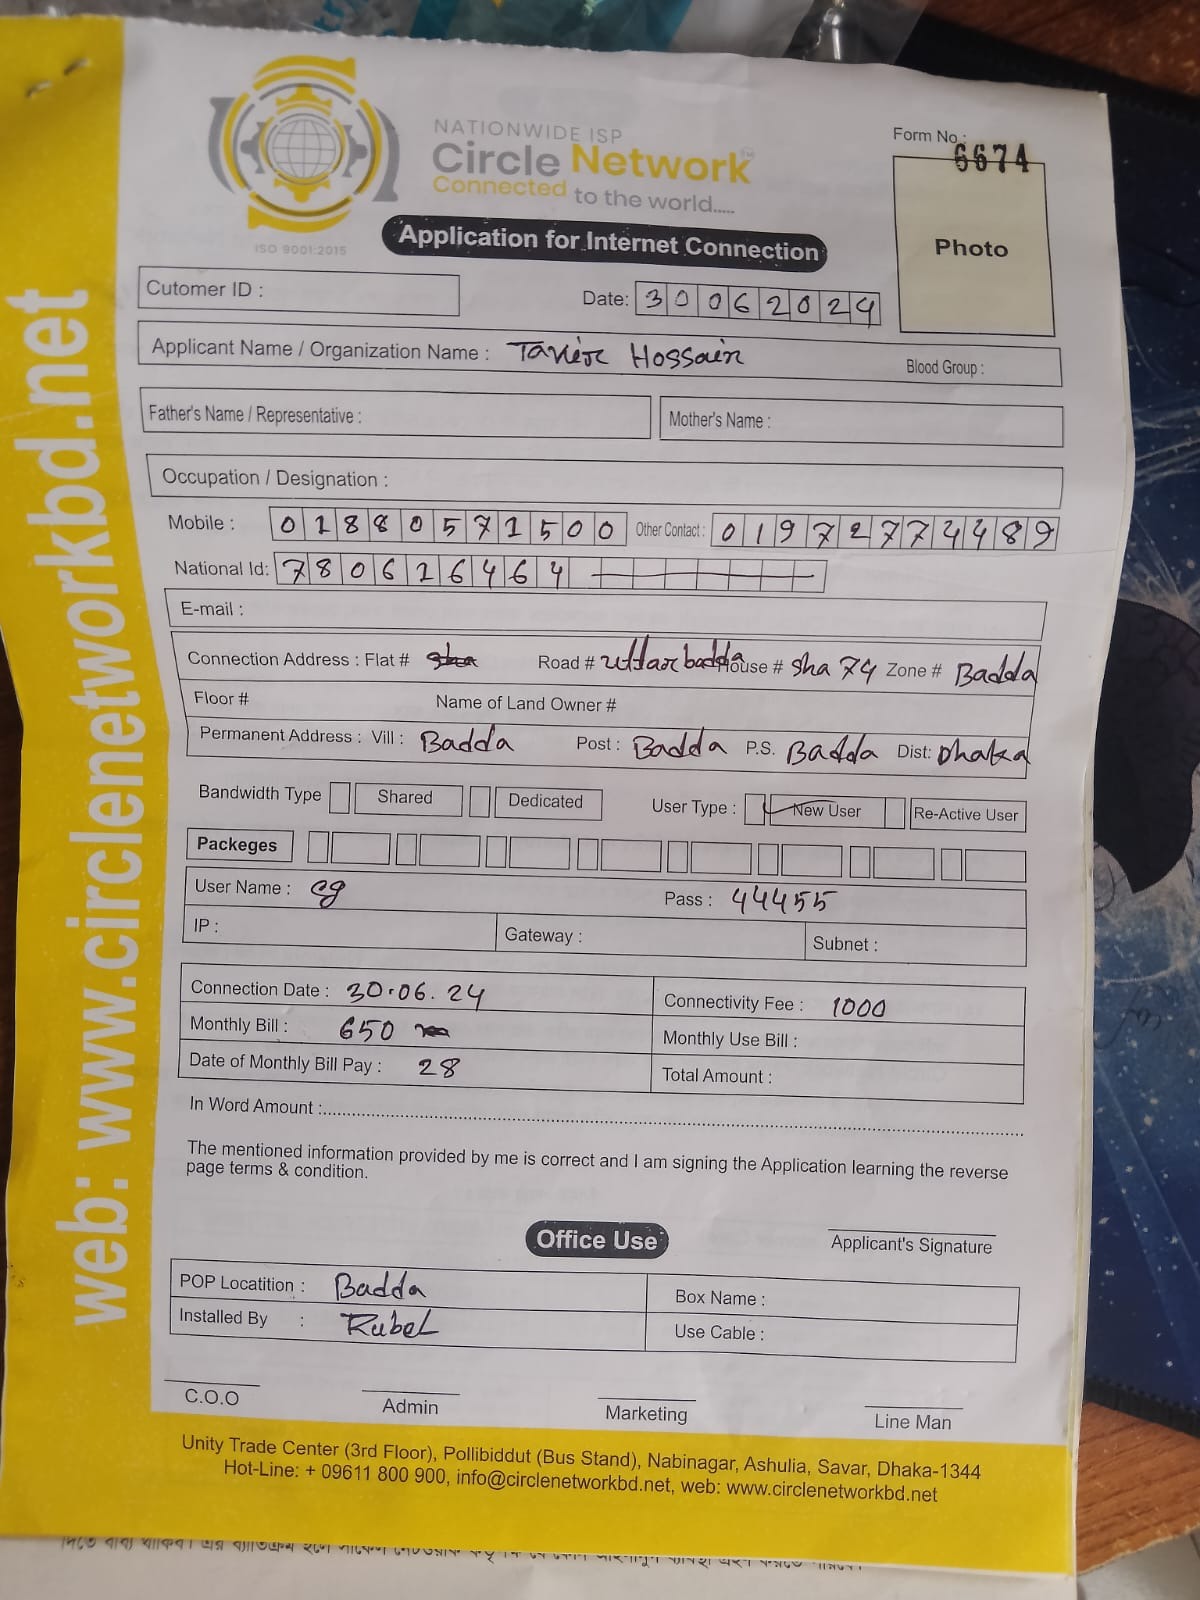 web: www.circlenetworkbd.net
NATIONWIDE ISP
Circle Network™
Connected to the world.....
ISO 9001:2015
Form No.: 6674
Photo
Application for Internet Connection
Cutomer ID :
Date: 30062024
Applicant Name / Organization Name : Tanvir Hossain Blood Group :
Father's Name / Representative : Mother's Name :
Occupation / Designation :
Mobile : 01880571500 Other Contact : 01972774489
National Id: 7806126464
E-mail :
Connection Address : Flat # Road # uttar badda House # sha 74 Zone # Badda
Floor # Name of Land Owner #
Permanent Address : Vill : Badda Post : Badda P.S. Badda Dist: Dhaka
Bandwidth Type Shared Dedicated User Type : New User Re-Active User
Packeges
User Name : cg Pass : 44455
IP : Gateway : Subnet :
Connection Date : 30.06.24 Connectivity Fee : 1000
Monthly Bill : 650 Monthly Use Bill :
Date of Monthly Bill Pay : 28 Total Amount :
In Word Amount :
The mentioned information provided by me is correct and I am signing the Application learning the reverse
page terms & condition.
Office Use
Applicant's Signature
POP Locatition : Badda Box Name :
Installed By : Rubel Use Cable :
C.O.O Admin Marketing Line Man
Unity Trade Center (3rd Floor), Pollibiddut (Bus Stand), Nabinagar, Ashulia, Savar, Dhaka-1344
Hot-Line: + 09611 800 900, info@circlenetworkbd.net, web: www.circlenetworkbd.net